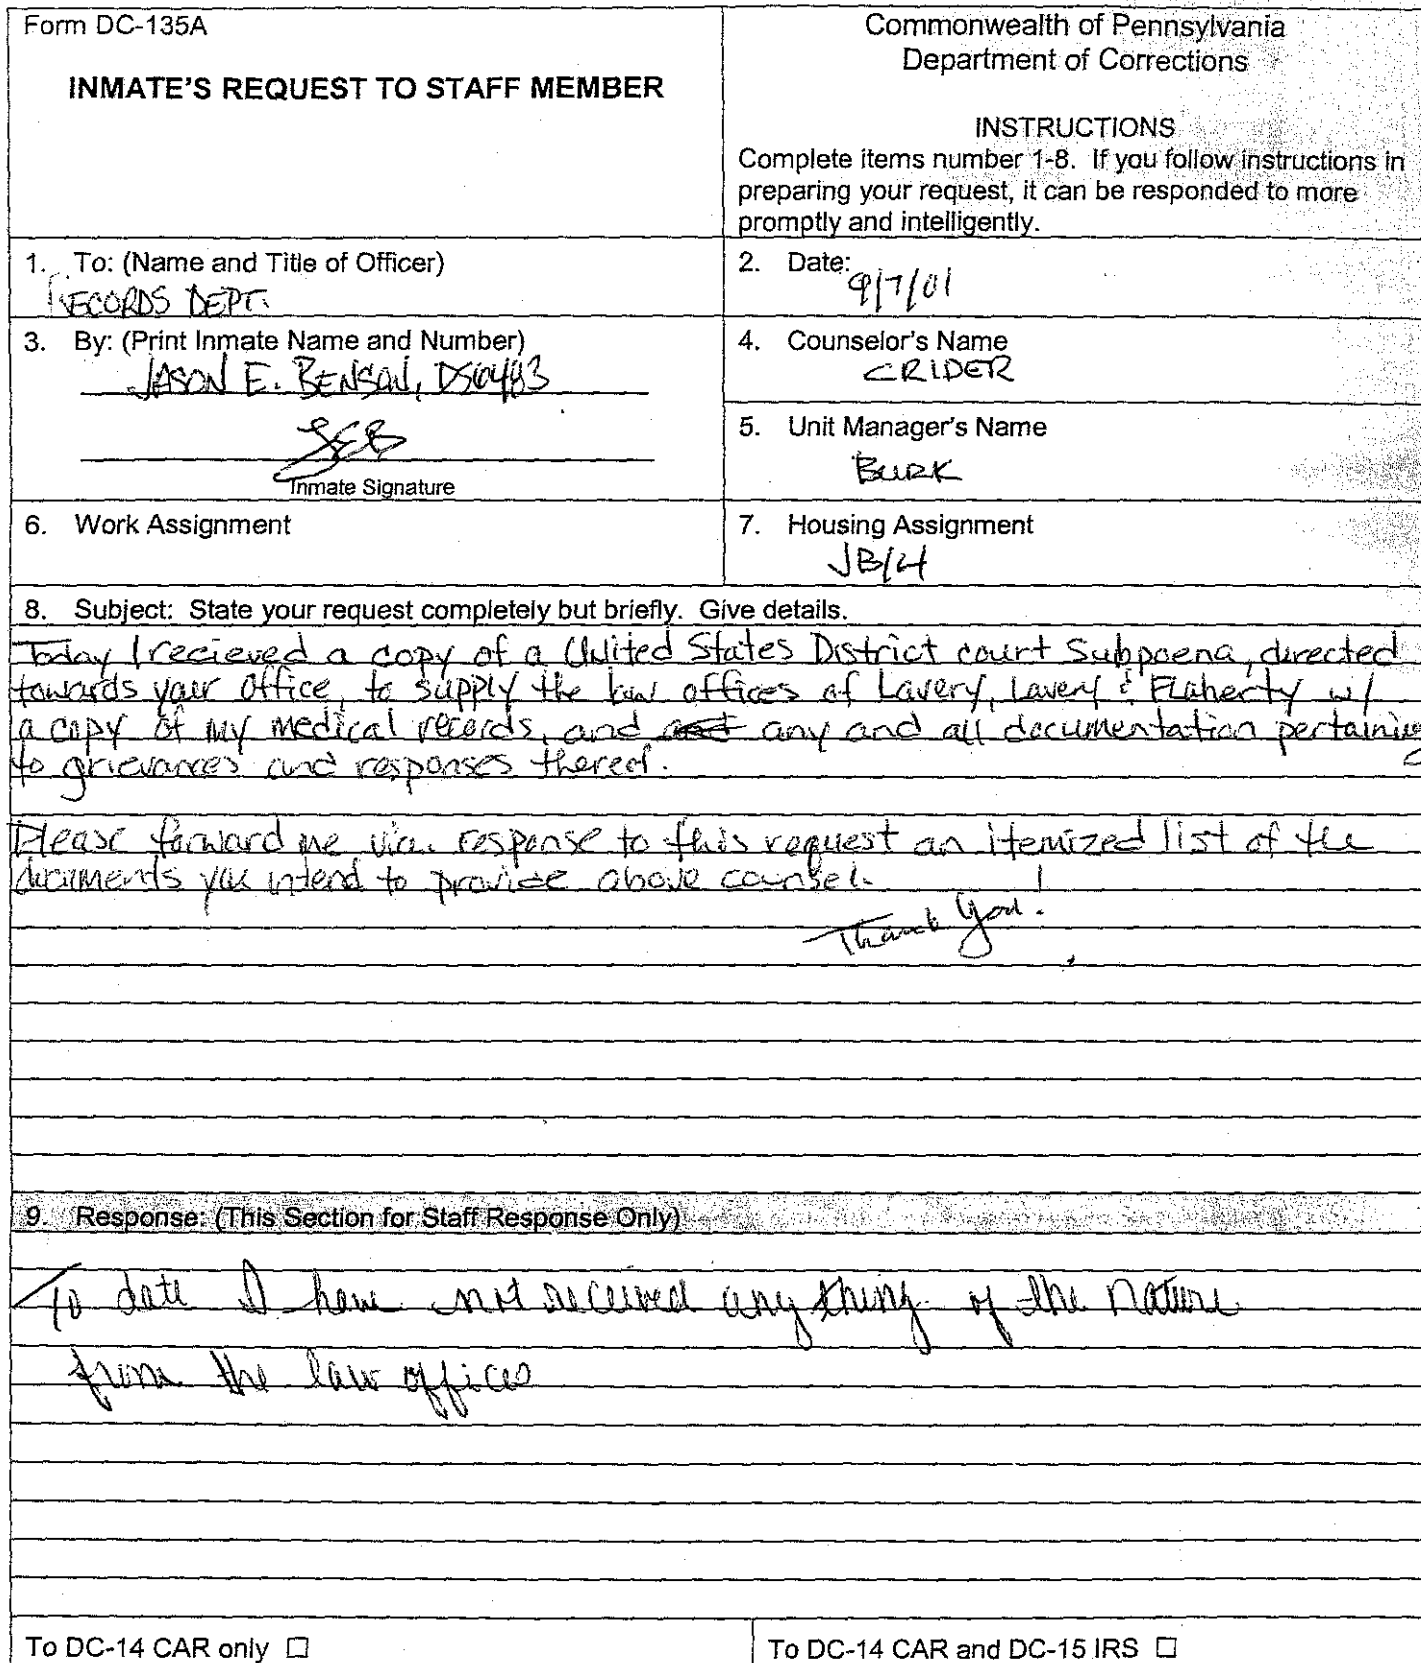 Form DC-135A
INMATE'S REQUEST TO STAFF MEMBER
Commonwealth of Pennsylvania
Department of Corrections
INSTRUCTIONS
Complete items number 1-8. If you follow instructions in
preparing your request, it can be responded to more
promptly and intelligently.
1. To: (Name and Title of Officer)
RECORDS DEPT.
2. Date:
9/7/01
3. By: (Print Inmate Name and Number)
JASON E. BENSON, DS6483
JEB
Inmate Signature
4. Counselor's Name
CRIDER
5. Unit Manager's Name
BURK
6. Work Assignment
7. Housing Assignment
JB/4
8. Subject: State your request completely but briefly. Give details.
Today I recieved a copy of a United States District court Subpoena, directed
towards your office, to supply the law offices of Lavery, Lavery & Flaherty w/
a copy of my medical records, and any and all documentation pertaining
to grievances and responses thereof.
Please forward me via. response to this request an itemized list of the
documents you intend to provide above counsel.
Thank you!
9. Response: (This Section for Staff Response Only)
To date I have not received any thing of the nature
from the law offices
To DC-14 CAR only ☐
To DC-14 CAR and DC-15 IRS ☐